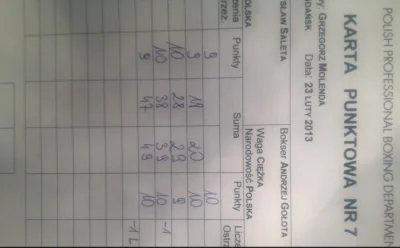 POLISH PROFESSIONAL BOXING DEPARTMEN
KARTA PUNKTOWA NR 7
y: GRZEGORZ MOLENDA
GDAŃSK Data: 23 LUTY 2013
SŁAW SALETA Bokser ANDRZEJ GOŁOTA
Waga CIĘŻKA
POLSKA Narodowość POLSKA
żenia Punkty Suma Punkty Licze
rzeż. Ostrz
9 10
9 18 20 10
10 28 29 9
10 38 39 10 -1
9 47 49 10
-1 L